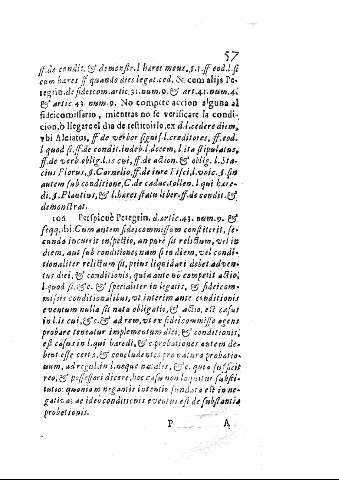 57
ff. de condit. & demonstr. l. hæres meus, §. 1. ff. eod. l. si
cum hæres ff. quando dies legat. ced. & cum alijs Pe-
regrin. de fideicom. artic. 31. num. 9. & art. 41. num. 4.
& artic. 43. num. 9. No compete accion alguna al
fideicomissario, mientras no se verificare la condi-
cion, ò llegare el dia de restituirlo, ex d. l. cedere diem,
vbi Alciatus, ff. de verbor. signif. l. creditores, ff. eod.
l. quod si. ff. de condit. indeb. l. decem, l. ita stipulatus,
ff. de verb. oblig. l. is cui, ff. de action. & oblig. l. Sta-
cius Florus, §. Cornelio, ff. de iure fisci, d. vnic. §. sin
autem sub conditione, C. de caduc. tollen. l. qui hære-
di, §. Plautius, & l. hæres statu liber, ff. de condit. &
demonstrat.
106 Perspicuè Peregrin. d. artic. 43. num. 9. &
seqq. ibi: Cum autem fideicommissum constiterit, se-
cundo incurit inspectio, an purè sit relictum, vel in
diem, aut sub conditione; nam si in diem, vel condi-
tionaliter relictum sit, prius liquidari debet adven-
tus diei, & conditionis, quia ante nõ competit actio,
l. quod si, & c. & specialiter in legatis, & fideicom-
missis conditionalibus, vt interim ante conditionis
eventum nulla sit nata obligatio, & actio, est casus
in l. is cui, & c. & ad rem, vt ex fideicommisso agens
probare teneatur implementum diei, & conditionis,
est casus in l. qui hæredi, & c. probationer autem de-
bent esse certæ, & concludentes pro natura probatio-
num, ad regul. in l. neque natales, & c. quia sufficit
reo, & possessori dicere, hoc casu non loquitur substi-
tutio: quoniam negantis intentio fundata est in ne-
gativa: ac ideo conditionis eventus est de substantia
probationis.
P A